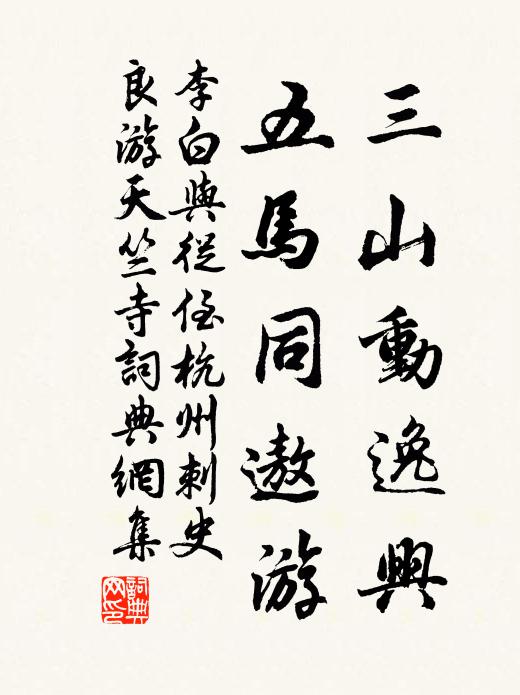 三山動逸興
五馬同遨游
李白與從侄杭州刺史
良游天竺寺詞典網集
詞典
網印